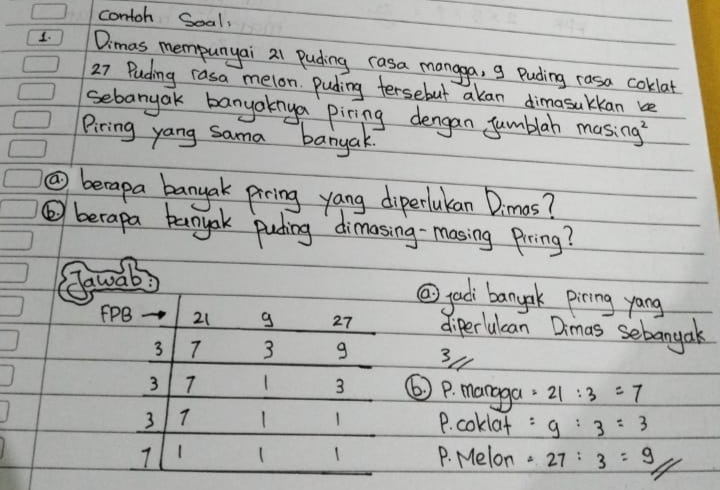 contoh Soal:
1. Dimas mempunyai 21 Puding rasa mangga, 9 Puding rasa coklat
27 Puding rasa melon. Puding tersebut akan dimasukkan ke
Sebanyak banyaknya Piring dengan Jumblah masing²
Piring yang Sama banyak.
a. berapa banyak Piring yang diperlukan Dimas?
b. berapa banyak Puding dimasing-masing Piring?
Jawab:
FPB → 21 9 27
3 7 3 9
3 7 1 3
3 7 1 1
7 1 1 1
a. jadi banyak Piring yang
diperlukan Dimas Sebanyak
3 //
b. P. mangga = 21 : 3 = 7
P. coklat = 9 : 3 = 3
P. Melon = 27 : 3 = 9 //